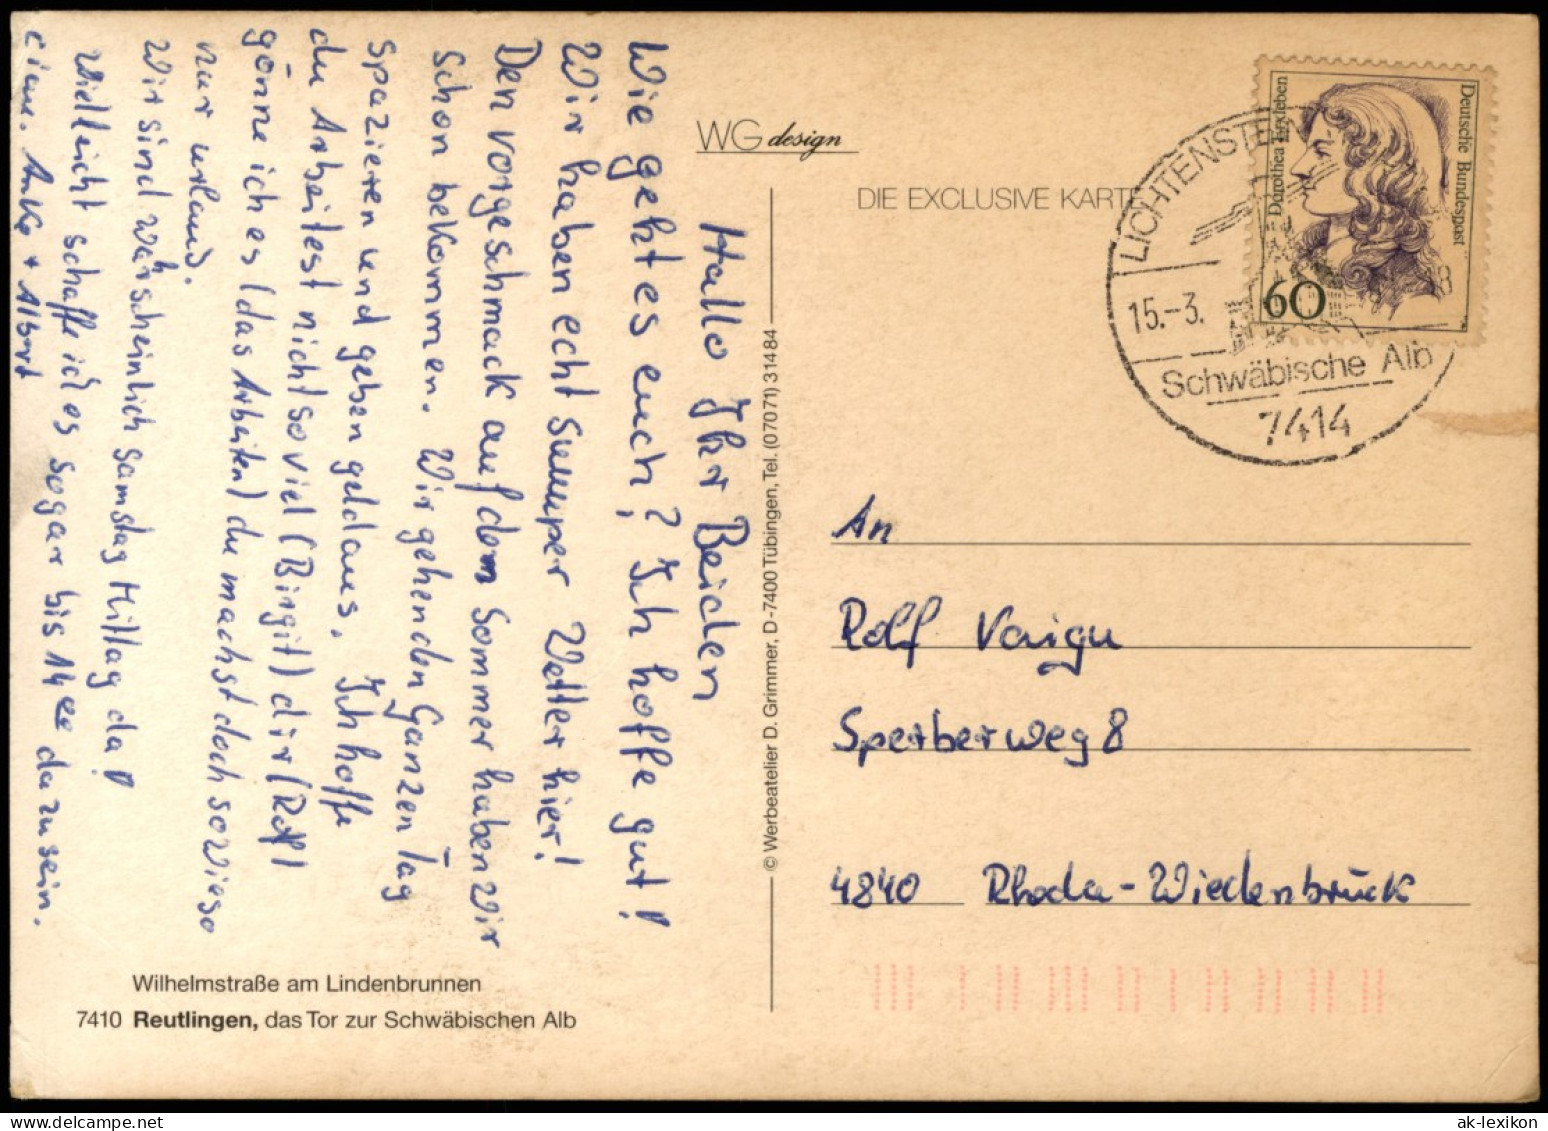 Hallo Ihr Beiden
Wie geht es euch? Ich hoffe gut!
Wir haben echt summper Wetter hier!
Den vorgeschmack auf dem Sommer haben Wir
schon bekommen. Wir gehen den Ganzen Tag
spazieren und geben geld aus. Ich hoffe
du Arbeitest nicht so viel (Birgit) dir (Rolf)
gönne ich es (das Arbeiten) du machst doch sowieso
nur urlaub.
Wir sind wahrscheinlich Samstag Mittag da!
Vielleicht schaffe ich es sogar bis 14 00 da zu sein.
eure. Anka + Albert
WG design
DIE EXCLUSIVE KARTE
© Werbeatelier D. Grimmer, D-7400 Tübingen, Tel. (07071) 31484
Deutsche Bundespost
Dorothea Erxleben
60
LICHTENSTEIN
15.-3.
Schwäbische Alb
7414
An
Rolf Vaigu
Sperberweg 8
4840 Rheda-Wiedenbrück
Wilhelmstraße am Lindenbrunnen
7410 Reutlingen, das Tor zur Schwäbischen Alb
ak-lexikon.com